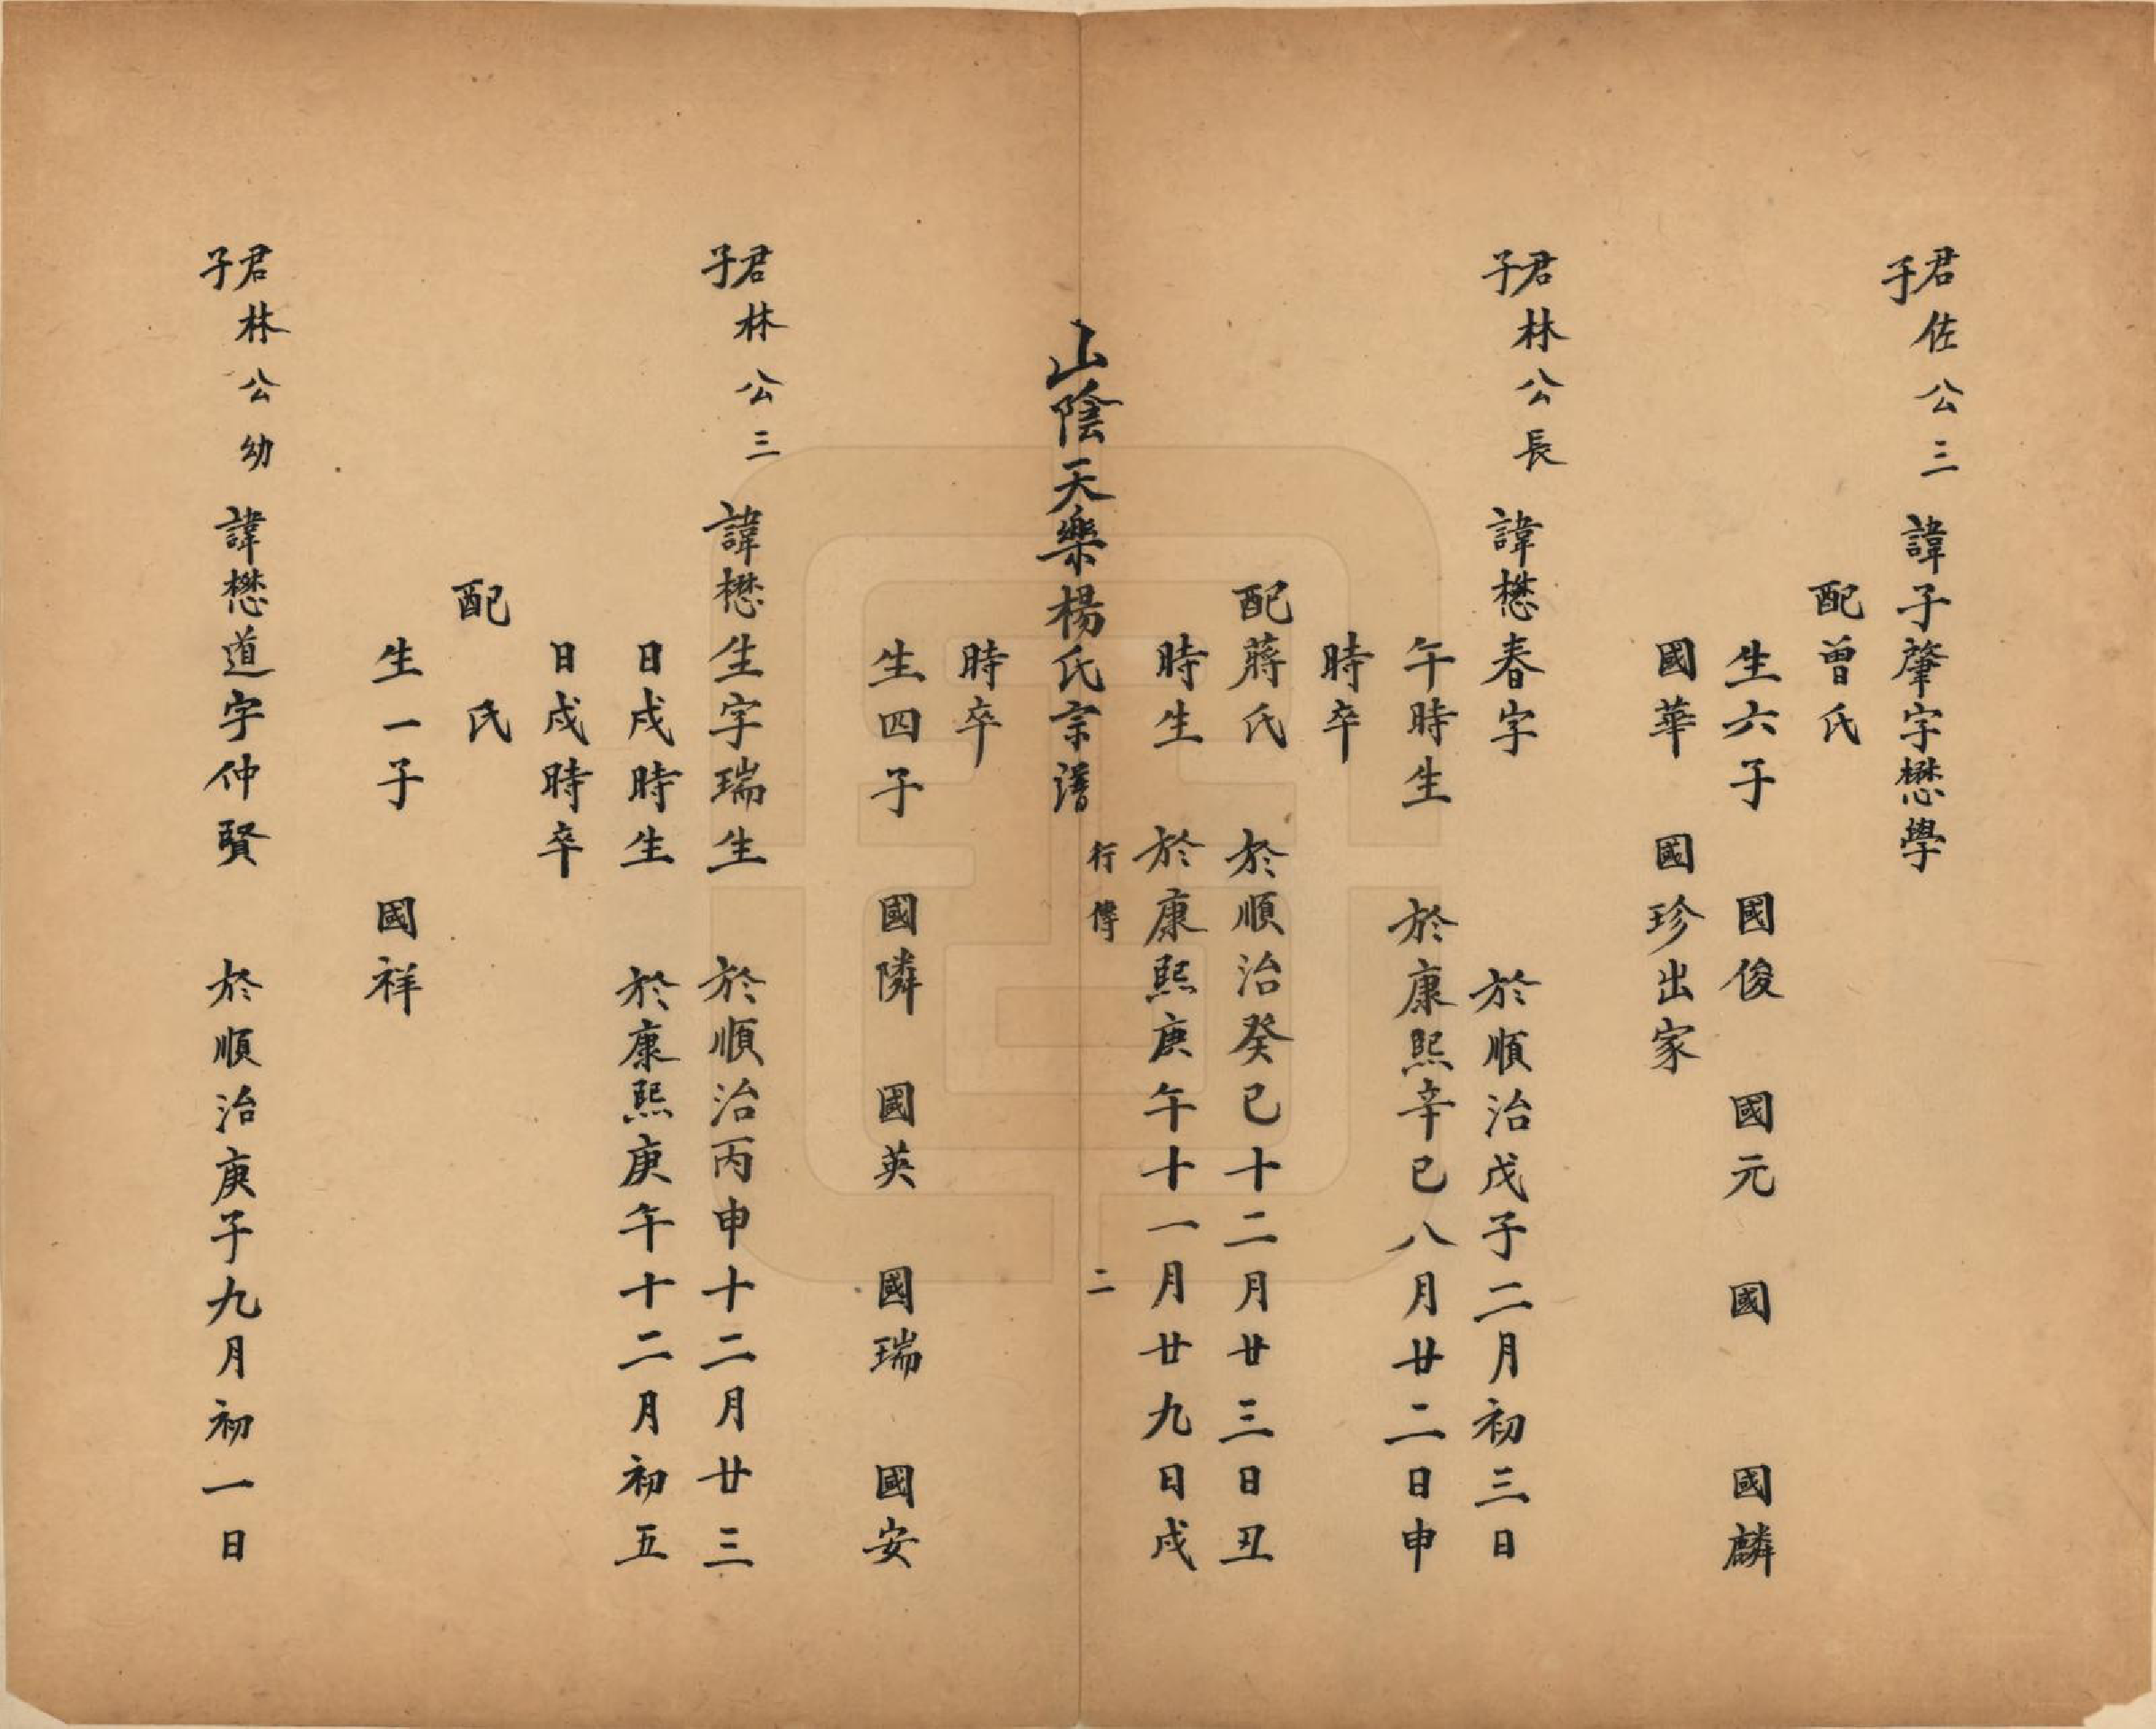 君佐公三子 諱子肇字懋學
配曾氏
生六子 國俊 國元 國 國麟
國華 國珍出家
君林公長子 諱懋春字 於順治戊子二月初三日
午時生 於康熙辛巳八月廿二日申
時卒
配蔣氏 於順治癸巳十二月廿三日丑
時生 於康熙庚午十一月廿九日戌
山陰天樂楊氏宗譜 行傳 二
時卒
生四子 國隣 國英 國瑞 國安
君林公三子 諱懋生字瑞生 於順治丙申十二月廿三
日戌時生 於康熙庚午十二月初五
日戌時卒
配 氏
生一子 國祥
君林公幼子 諱懋道字仲賢 於順治庚子九月初一日